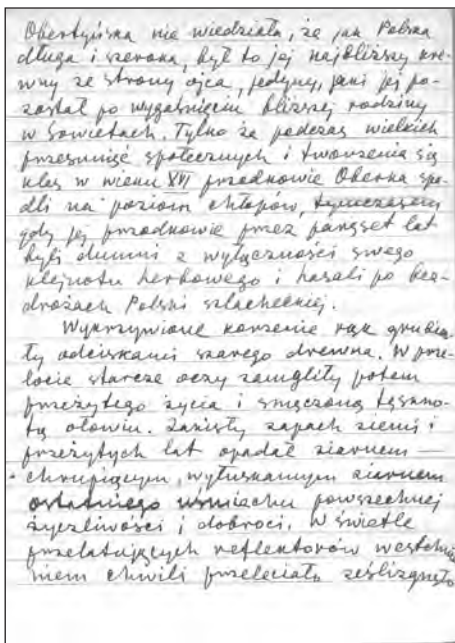 Obertyńska nie wiedziała, że jak Polska
długa i szeroka, był to jej najbliższy kre-
wny ze strony ojca, jedyny, jaki jej po-
został po wygaśnięciu bliższej rodziny
w Sowietach. Tylko że podczas wielkich
przesunięć społecznych i tworzenia się
klas w wieku XVI przodkowie Oberka spa-
dli na poziom chłopów, tymczasem
gdy jej przodkowie przez paręset lat
byli dumni z wyłączności swego
klejnotu herbowego i hasali po bez-
drożach Polski szlacheckiej.
Wykrzywione korzenie rąk grubia-
ły odciskami szarego drewna. W prze-
locie starcze oczy zamgliły potem
przeżytego życia i smęczoną tęskno-
tą ołowiu. Zawisły zapach ziemi i
przeżytych lat opadał ziarnem —
chrupiącym, wyłuskanym ziarnem
ostatniego uśmiechu powszechnej
życzliwości i dobroci. W świetle
przelatujących reflektorów westchnie-
niem chwili przeleciała ześlizgnęło